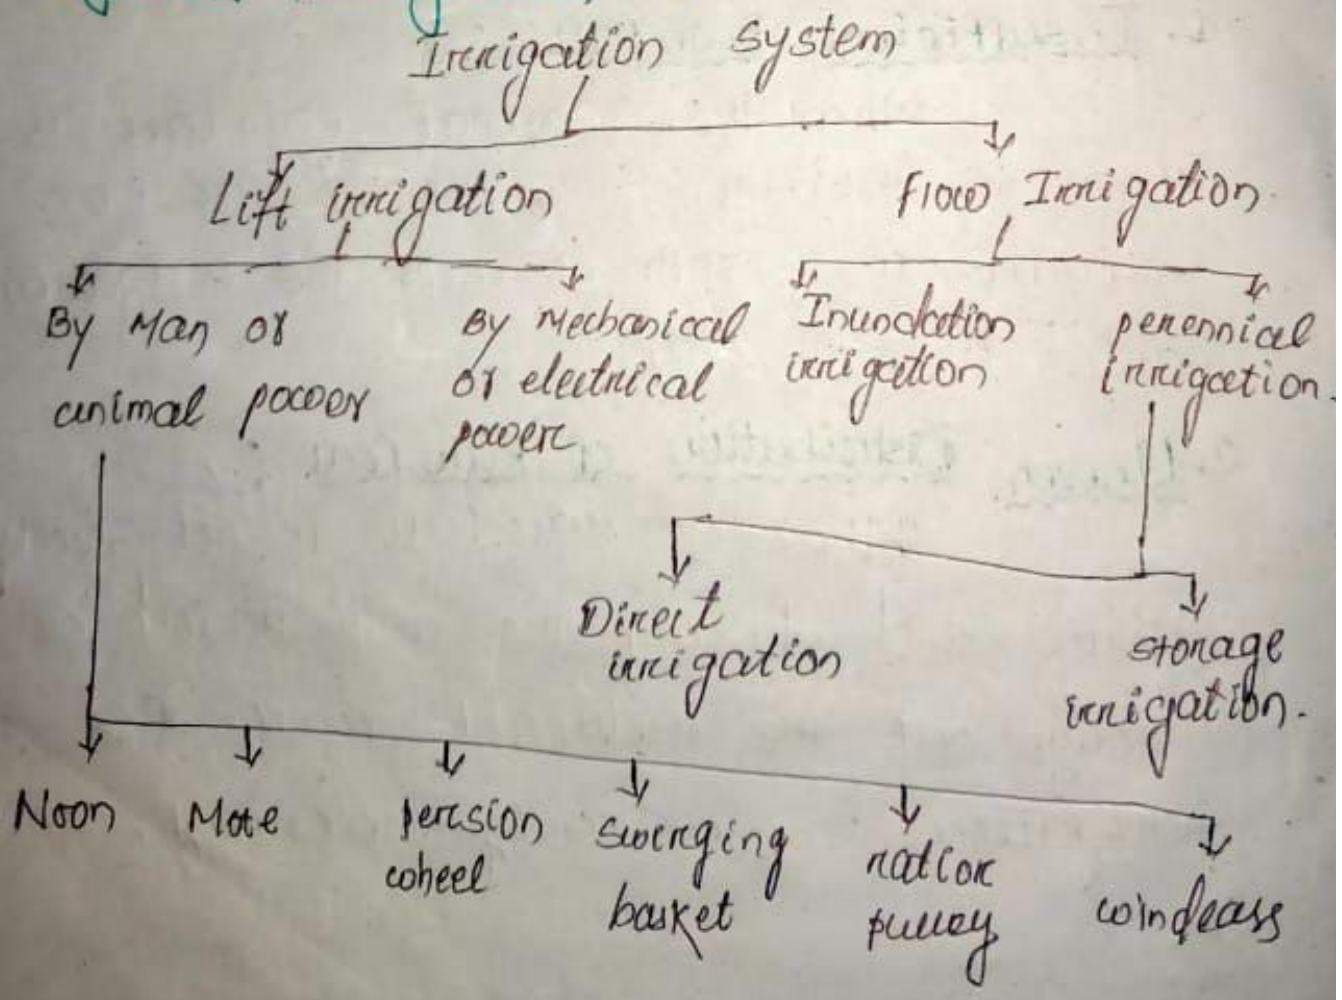 Irrigation system
Lift irrigation
flow Irrigation.
By Man or
animal power
By Mechanical
or electrical
power
Inundation
irrigation
perennical
irrigation.
Direct
irrigation
storage
irrigation.
Noon
Mote
persion
wheel
swinging
basket
pulley
windlass